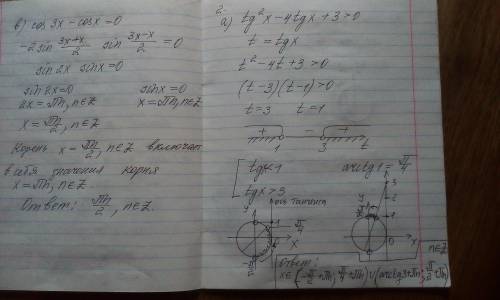 в) cos 3x - cosx = 0
-2 sin (3x+x)/2 sin (3x-x)/2 = 0
sin 2x sinx = 0
sin 2x = 0 sinx = 0
2x = πn, n∈Z x = πn, n∈Z
x = πn/2, n∈Z
Корень x = πn/2, n∈Z включает
в себя значения корня
x = πn, n∈Z
Ответ: πn/2, n∈Z.
2.
а) tg²x - 4tgx + 3 > 0
t = tgx
t² - 4t + 3 > 0
(t-3)(t-1) > 0
t = 3 t = 1
+ - +
1 3 t
[ tgx < 1 arctg 1 = π/4
tgx > 3
ось тангенса
y
1
π/4
x
y
3
2
1
0
x
Ответ: n∈Z
x∈(-π/2+πn; π/4+πn)∪(arctg3+πn; π/2+πn)